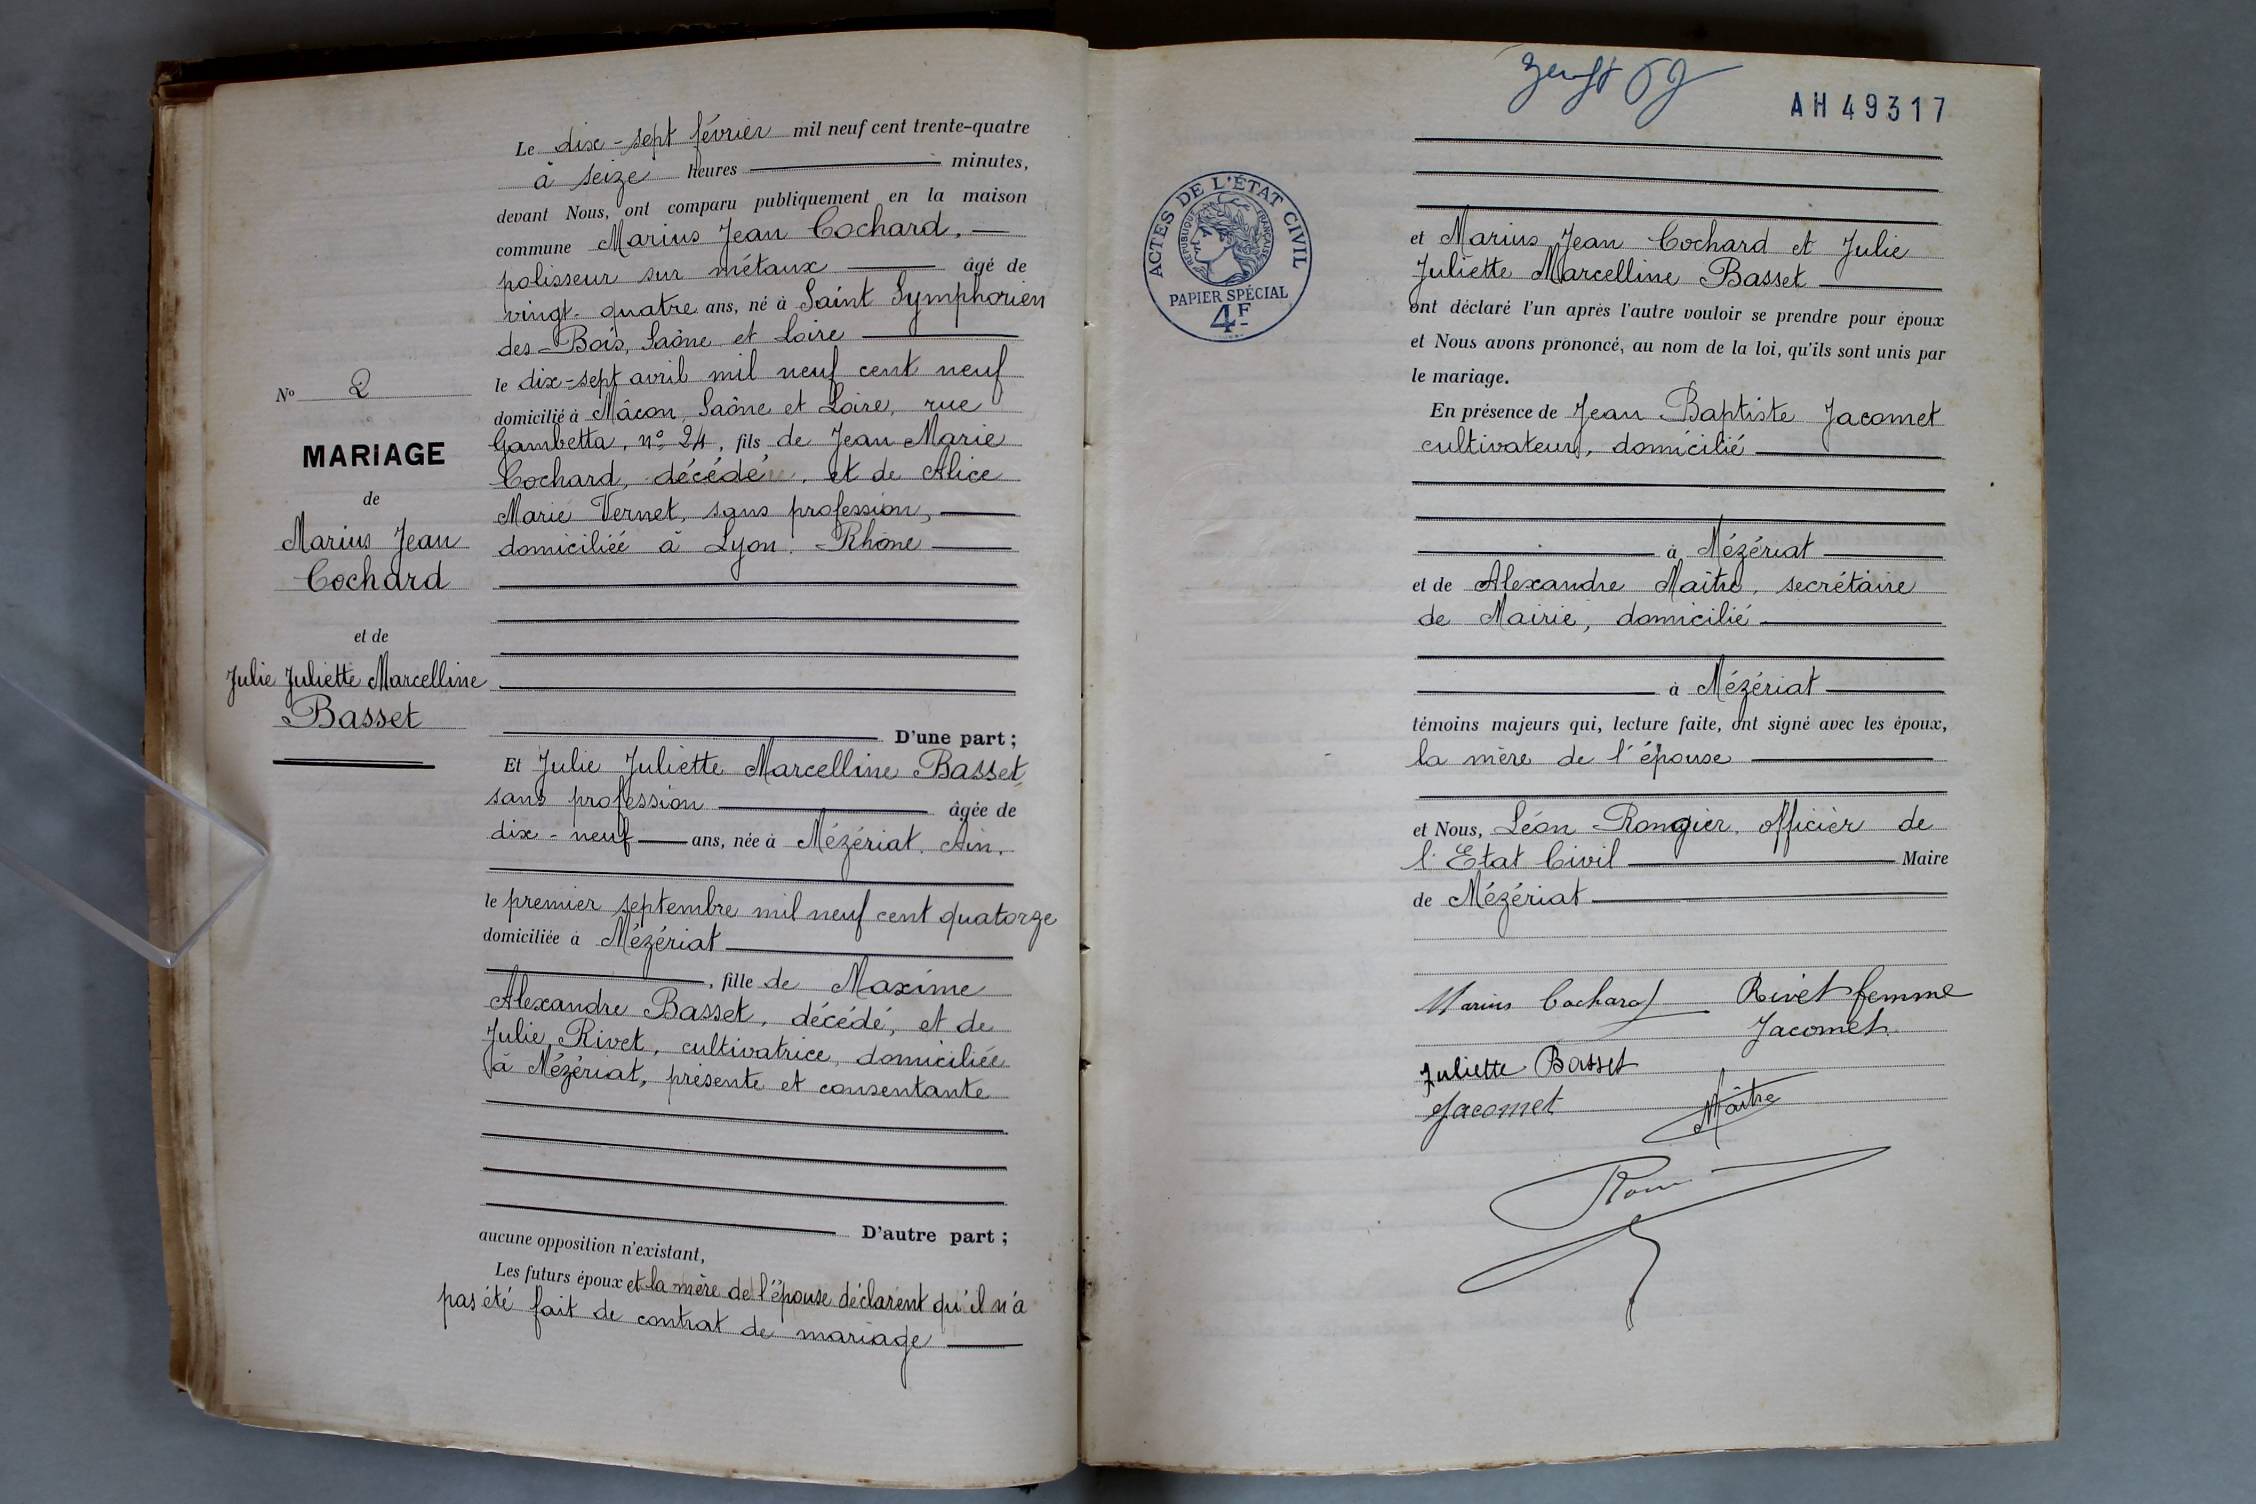 Le dix-sept février mil neuf cent trente-quatre
à seize heures minutes,
devant Nous, ont comparu publiquement en la maison
commune Marius Jean Cochard,
polisseur sur métaux âgé de
vingt-quatre ans, né à Saint Symphorien
des-Bois, Saône et Loire
le dix-sept avril mil neuf cent neuf
domicilié à Mâcon, Saône et Loire, rue
Gambetta, nº 24, fils de Jean Marie
Cochard, décédé, et de Alice
Marie Vernet, sans profession,
domiciliée à Lyon. Rhône
D'une part ;
Nº 2
MARIAGE
de
Marius Jean
Cochard
et de
Julie Juliette Marcelline
Basset
Et Julie Juliette Marcelline Basset,
sans profession âgée de
dix-neuf ans, née à Mézériat, Ain,
le premier septembre mil neuf cent quatorze
domiciliée à Mézériat
, fille de Maxime
Alexandre Basset, décédé, et de
Julie Rivet, cultivatrice, domiciliée
à Mézériat, présente et consentante
D'autre part ;
aucune opposition n'existant,
Les futurs époux et la mère de l'épouse déclarent qu'il n'a
pas été fait de contrat de mariage
AH 49317
ACTES DE L'ÉTAT CIVIL
REPUBLIQUE FRANÇAISE
PAPIER SPÉCIAL
4F
et Marius Jean Cochard et Julie
Juliette Marcelline Basset
ont déclaré l'un après l'autre vouloir se prendre pour époux
et Nous avons prononcé, au nom de la loi, qu'ils sont unis par
le mariage.
En présence de Jean Baptiste Jacomet
cultivateur, domicilié
à Mézériat
et de Alexandre Maître, secrétaire
de Mairie, domicilié
à Mézériat
témoins majeurs qui, lecture faite, ont signé avec les époux,
la mère de l'épouse
et Nous, Léon Rongier, officier de
l'Etat Civil Maire
de Mézériat
Marius Cochard Rivet femme
Jacomet
Juliette Basset
Jacomet Maître